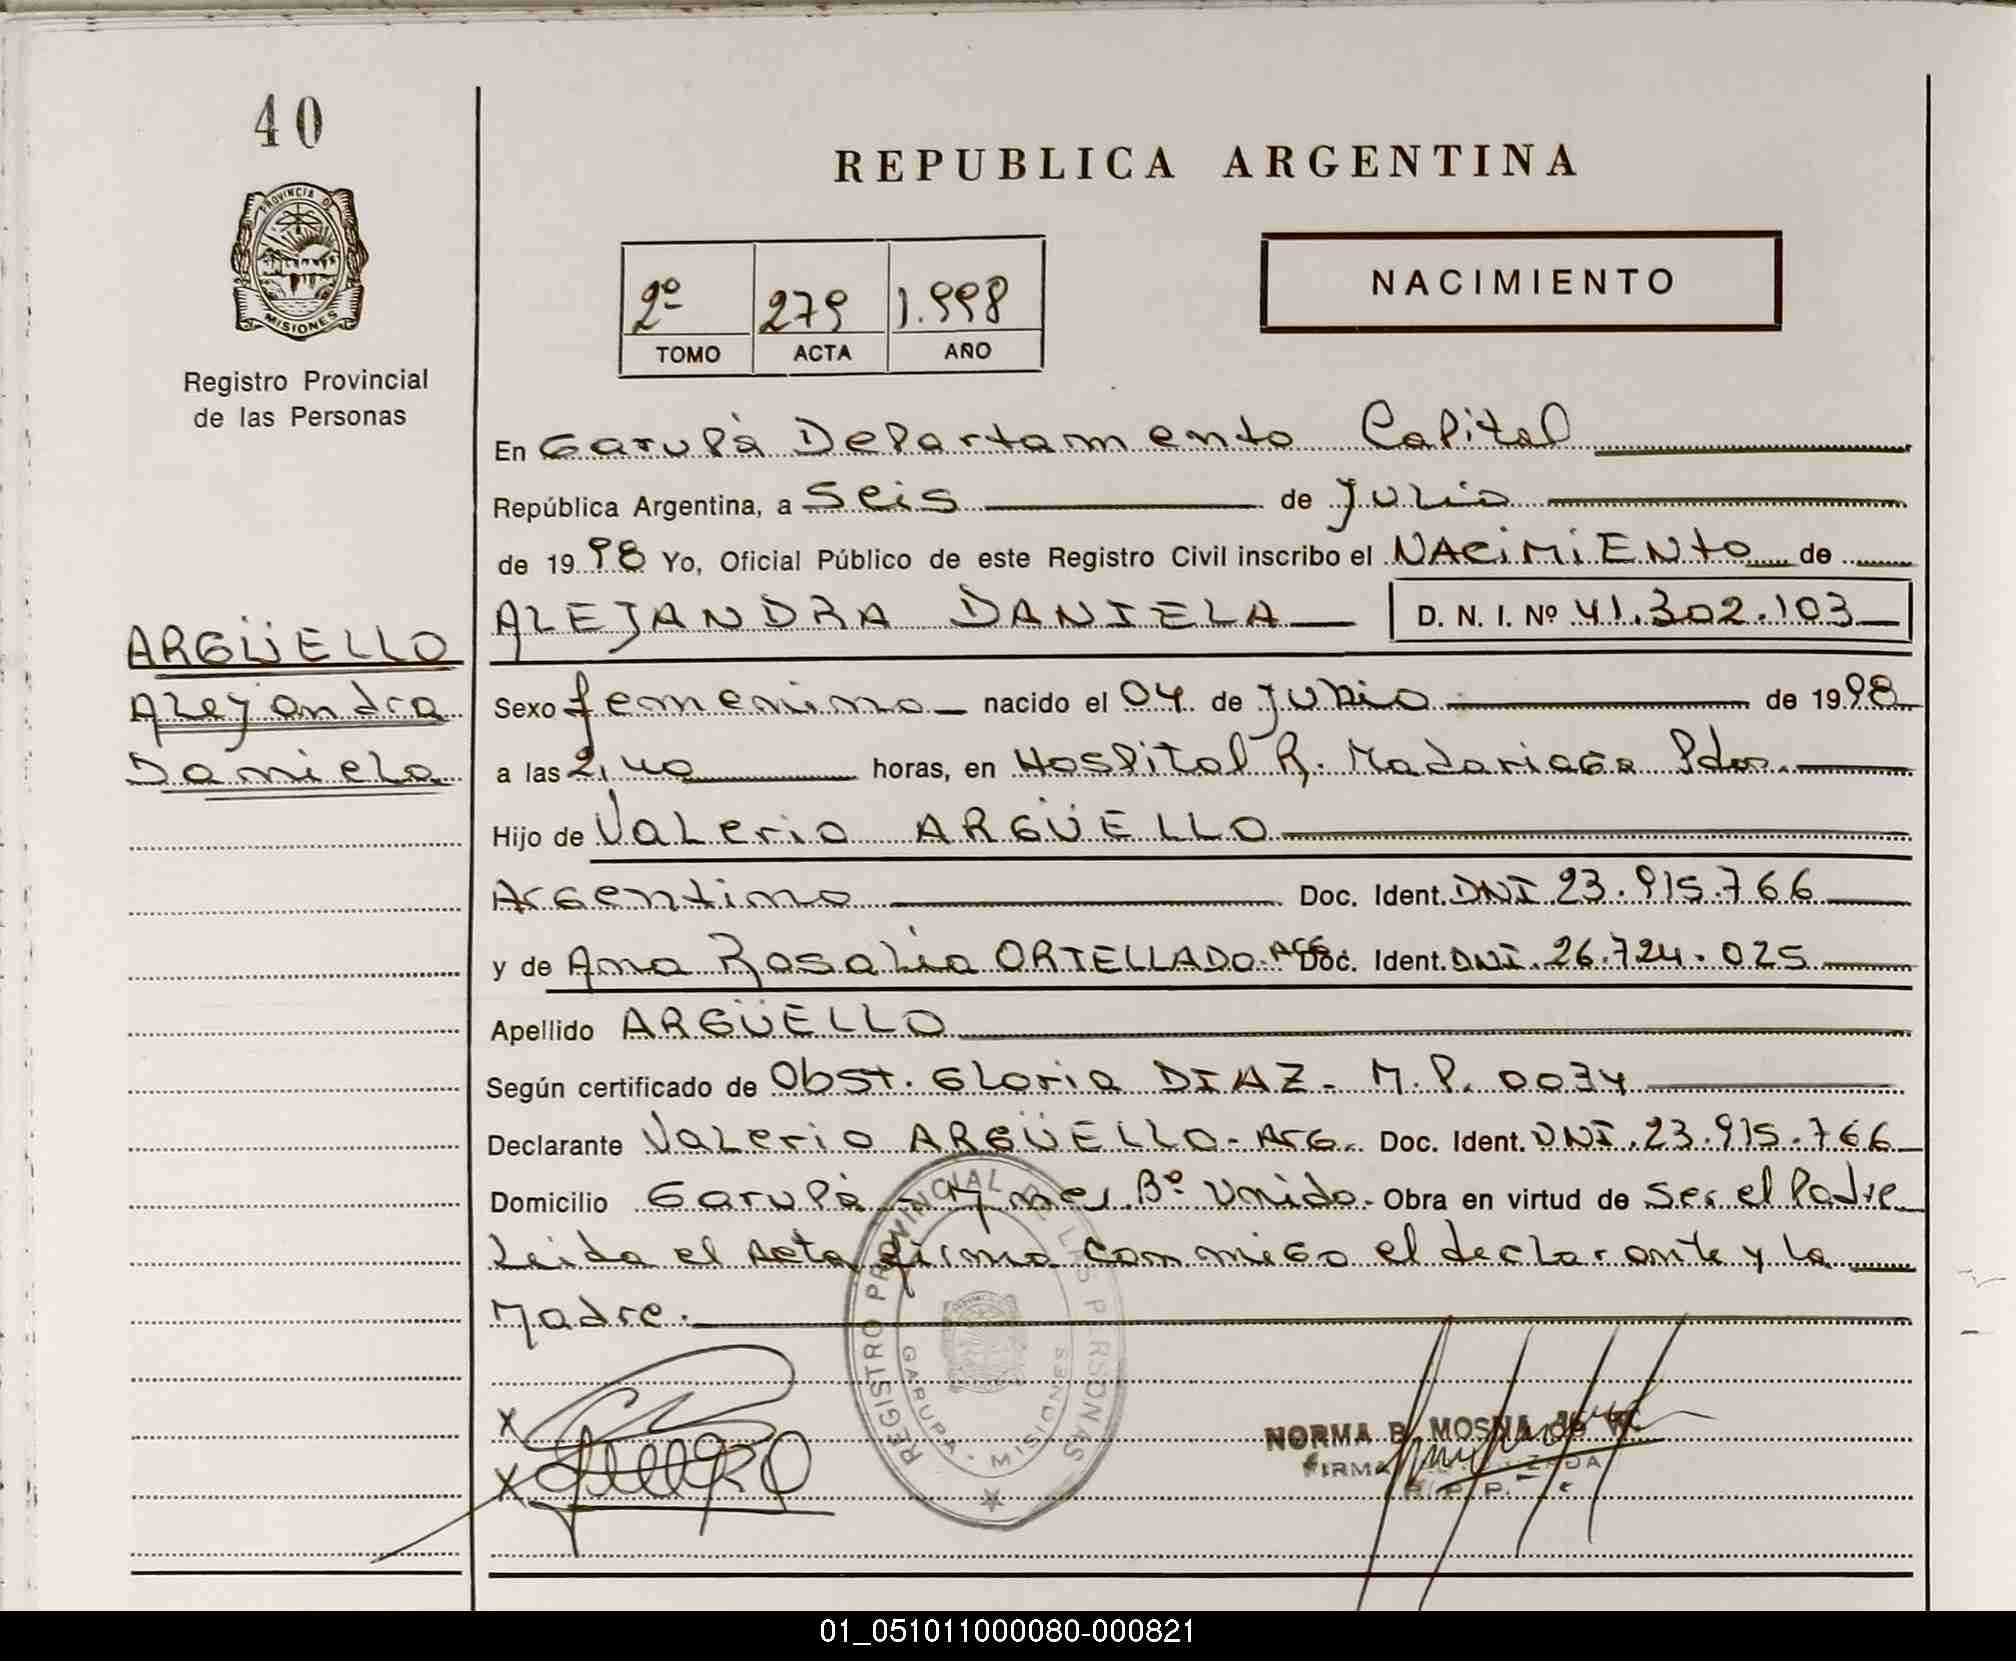 40
REPUBLICA ARGENTINA
PROVINCIA DE
MISIONES
Registro Provincial
de las Personas
2º 279 1.998
TOMO ACTA AÑO
NACIMIENTO
En Garupá Departamento Capital
República Argentina, a Seis de Julio
de 1998 Yo, Oficial Público de este Registro Civil inscribo el NACIMIENTO de
ALEJANDRA DANIELA D. N. I. Nº 41.302.103
ARGÜELLO
Alejandra
Daniela
Sexo femenino nacido el 04 de Junio de 1998
a las 2,40 horas, en Hospital R. Madariaga Pdas.
Hijo de Valerio ARGÜELLO
Argentino Doc. Ident. DNI 23.915.766
y de Ana Rosalia ORTELLADO. Arg. Doc. Ident. DNI. 26.724.025
Apellido ARGÜELLO
Según certificado de Obst. Gloria DIAZ - M.P. 0034
Declarante Valerio ARGÜELLO - Arg. Doc. Ident. DNI. 23.915.766
Domicilio Garupá - Bº Unido - Obra en virtud de Ser el Padre
Leida el Acta firma conmigo el declarante y la
Madre.
REGISTRO PROVINCIAL DE LAS PERSONAS
GARUPA - MISIONES
X
X
NORMA B. MOSNA de
FIRMA
R. P. P.
01_051011000080-000821